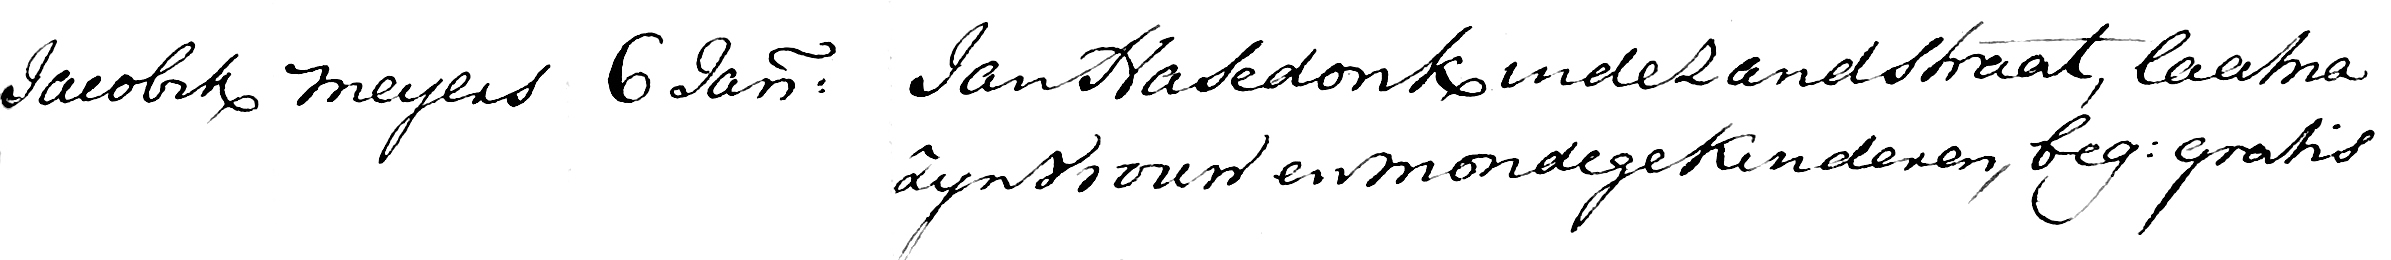 Jacobik meyers 6 Jan̄: Jan Hasedonk in de Zandstraat, laat na
zyn Vrouw en mondege Kinderen, beg: gratis